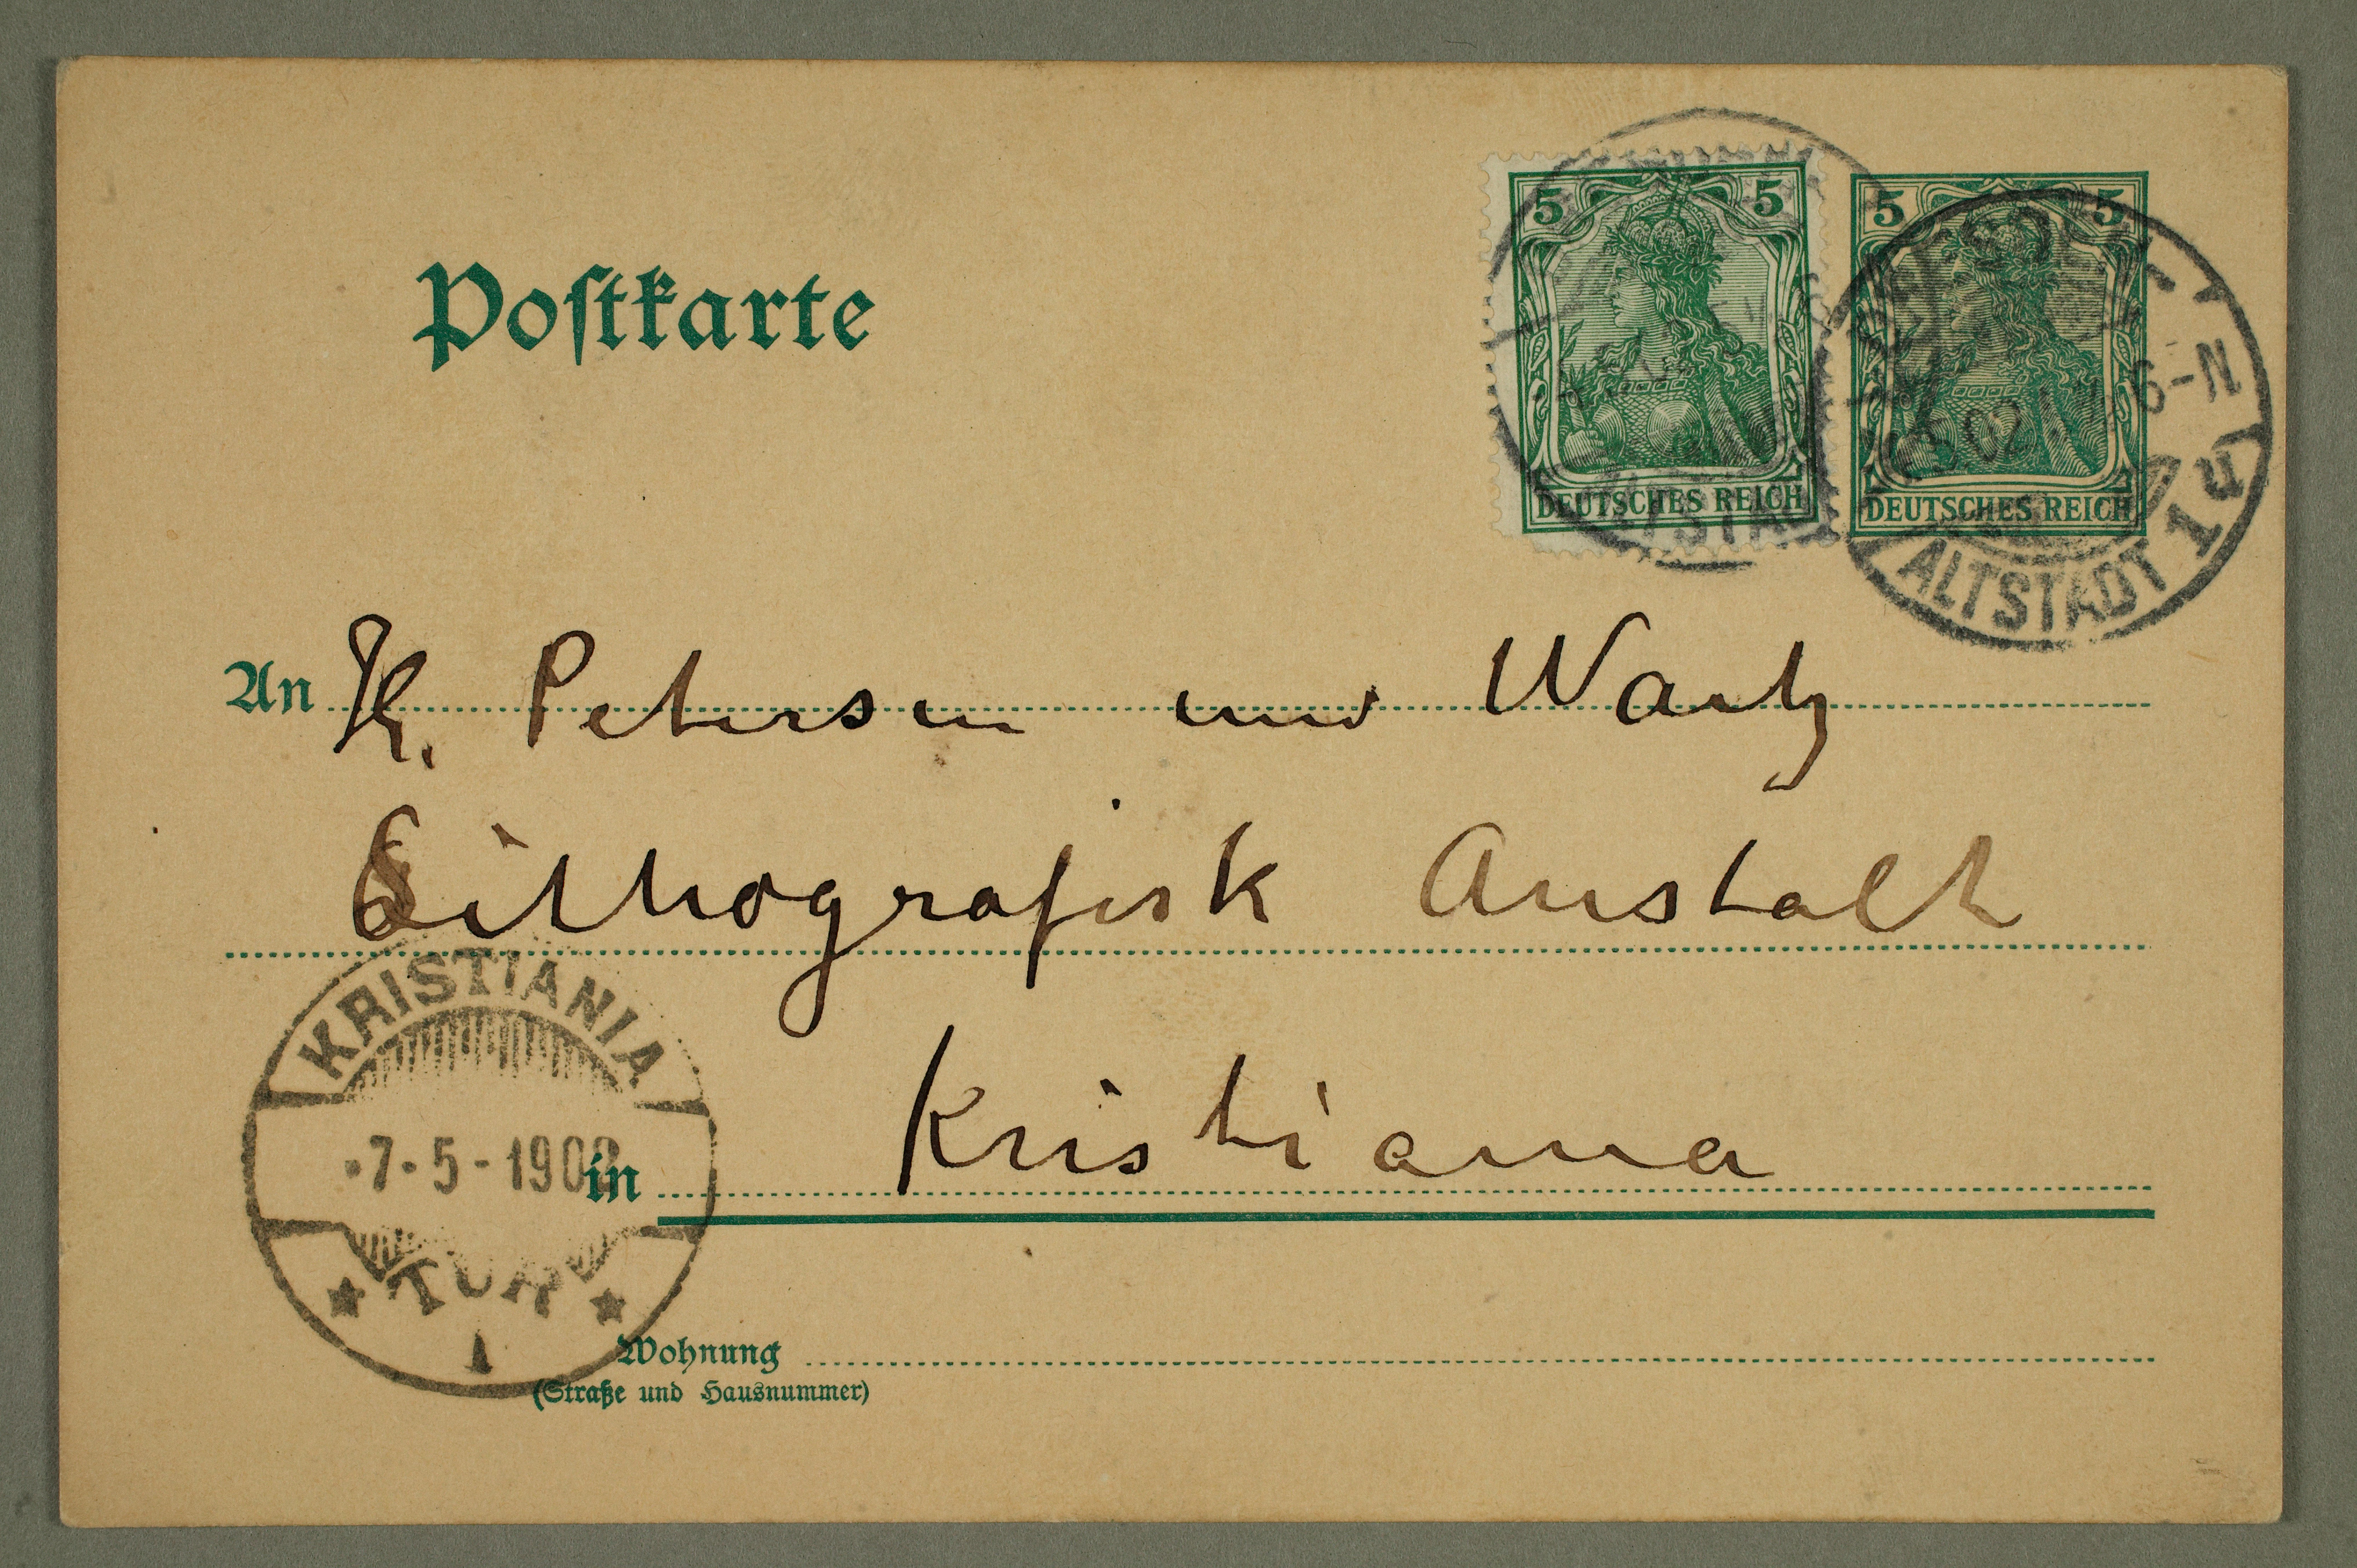 Postkarte
5 5
5 5
DEUTSCHES REICH
DEUTSCHES REICH
DRESDEN
5.02 6-N
ALTSTADT 1
ALTSTADT
An H. Petersen und Wartz
Lithografisk Anstalt
KRISTIANIA
7-5-1902
in Kristiania
1
Wohnung
(Straße und Hausnummer)